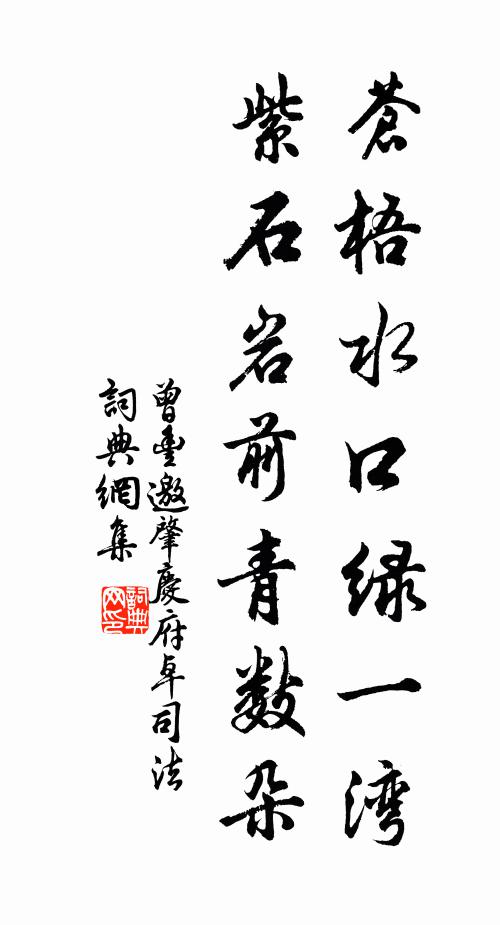 蒼梧水口绿一湾
紫石岩前青数朵
曾豊邀肇慶府卓司法
詞典網集
詞典网印